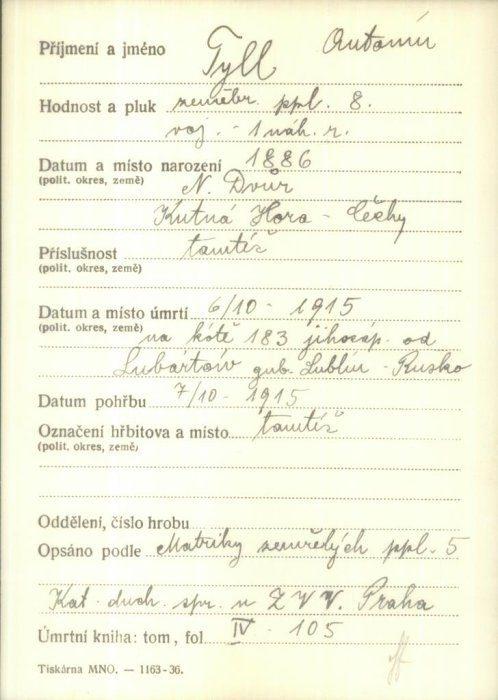 Příjmení a jméno Tyll Antonín
Hodnost a pluk zeměbr. ppl. 8.
voj. - 1 náh. r.
Datum a místo narození 1886
(polit. okres, země) N. Dvůr
Kutná Hora - Čechy
Příslušnost tamtéž
(polit. okres, země)
Datum a místo úmrtí 6/10 - 1915
(polit. okres, země) na kótě 183 jihozáp. od
Lubartów gub. Lublin - Rusko
Datum pohřbu 7/10 - 1915
Označení hřbitova a místo tamtéž
(polit. okres, země)
Oddělení, číslo hrobu
Opsáno podle Matriky zemřelých ppl. 5
Kat. duch. spr. u Z V V. Praha
Úmrtní kniha: tom, fol. IV - 105
Tiskárna MNO. — 1163-36.